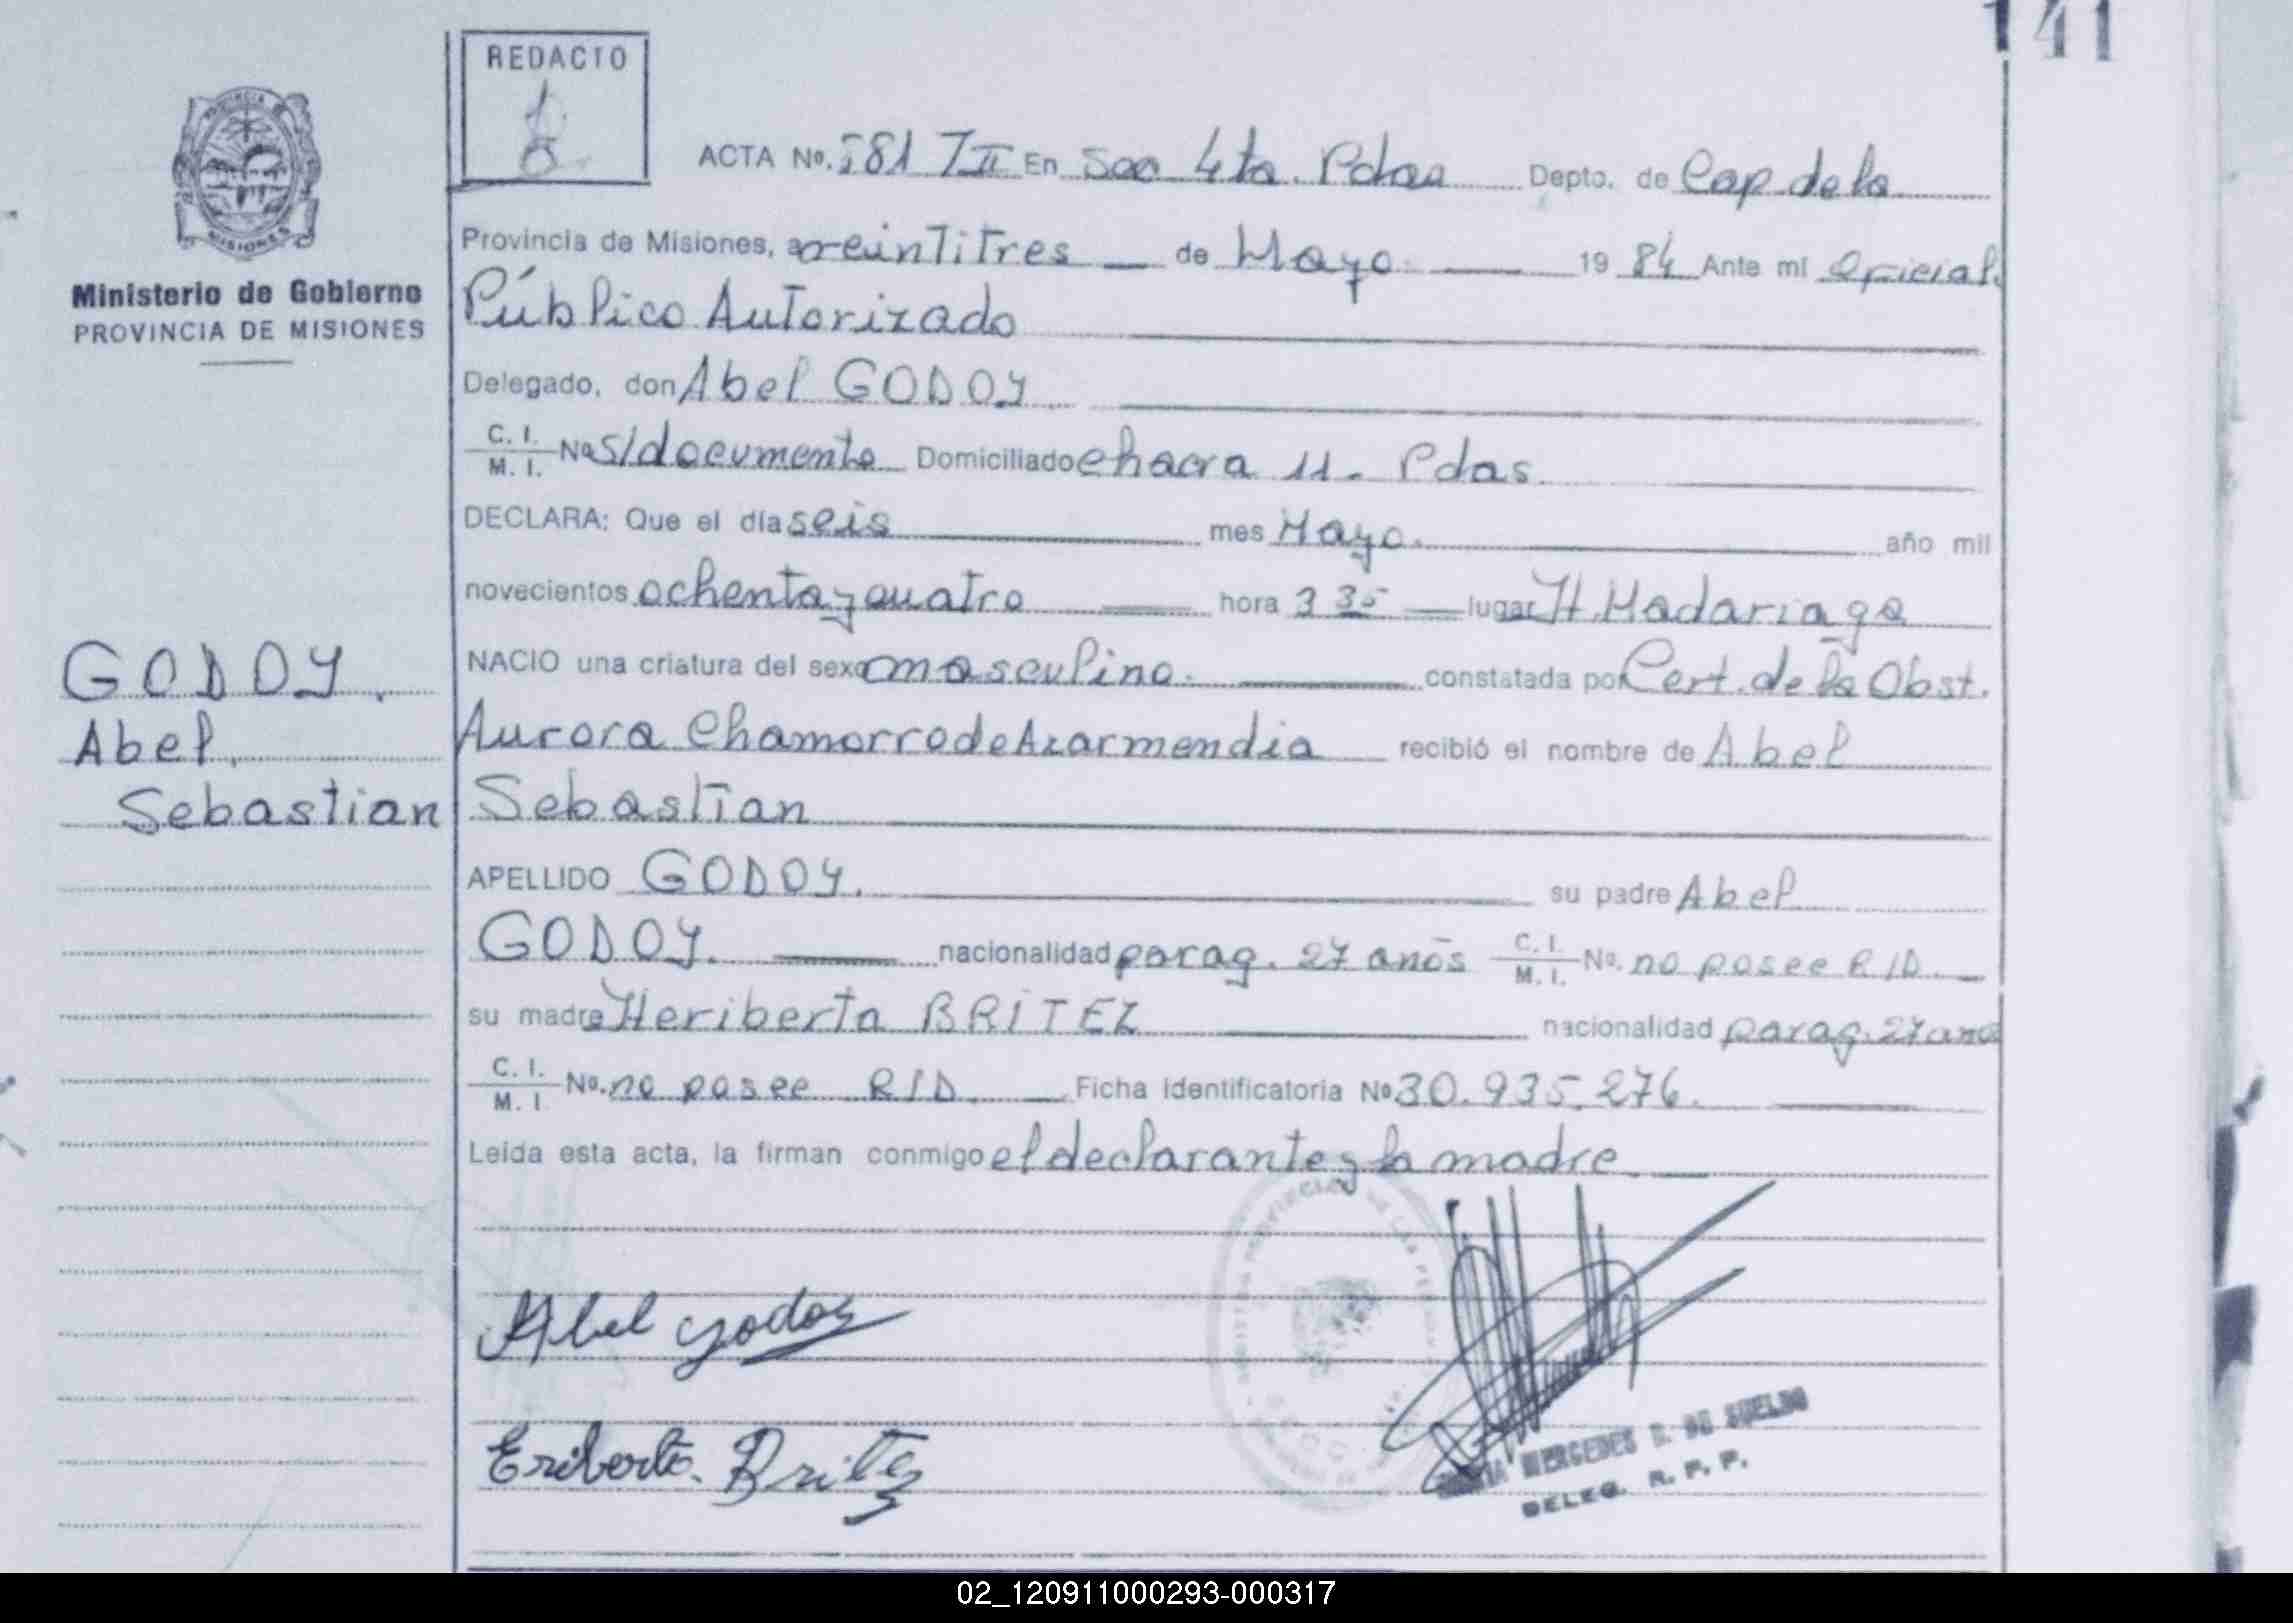 141
REDACTO
PROVINCIA
MISIONES
Ministerio de Gobierno
PROVINCIA DE MISIONES
ACTA No. 581 T II En Secc 4ta. Pdas Depto. de Cap de la
Provincia de Misiones, a veintitres de Mayo 19 84 Ante mí Oficial
Público Autorizado
Delegado, don Abel GODOY
C. I. / M. I. No s/documento Domiciliado chacra 11. Pdas
DECLARA: Que el día seis mes Mayo. año mil
novecientos ochenta y cuatro hora 3 35 lugar H. Madariaga
NACIO una criatura del sexo masculino. constatada por Cert. de la Obst.
Aurora Chamorro de Azarmendia recibió el nombre de Abel
Sebastian
APELLIDO GODOY. su padre Abel
GODOY. nacionalidad parag. 27 años C. I. / M. I. No. no posee R/D.
su madre Heriberta BRITEZ nacionalidad parag. 27 años
C. I. / M. I. No. no posee R/D. Ficha identificatoria No 30.935.276.
Leída esta acta, la firman conmigo el declarante y la madre
GODOY.
Abel
Sebastian
Abel Godoy
Eriberta Britez
MERCEDES B. DE SUELDO
DELEG. R. P. P.
02_120911000293-000317